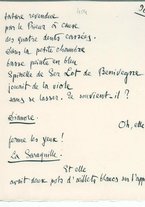 toture revendue
par le Prieur à cause
des quatre dents cassées.
Dans la petite chambre
basse peinte en bleu
de Ser Lot de
jouait de la viole
sans se lasser. Se souvient-il ?
Sianore
Oh, elle
ferme les yeux !
La Saraquille
Et elle
avait deux pots d'œillets blancs sur l'appui